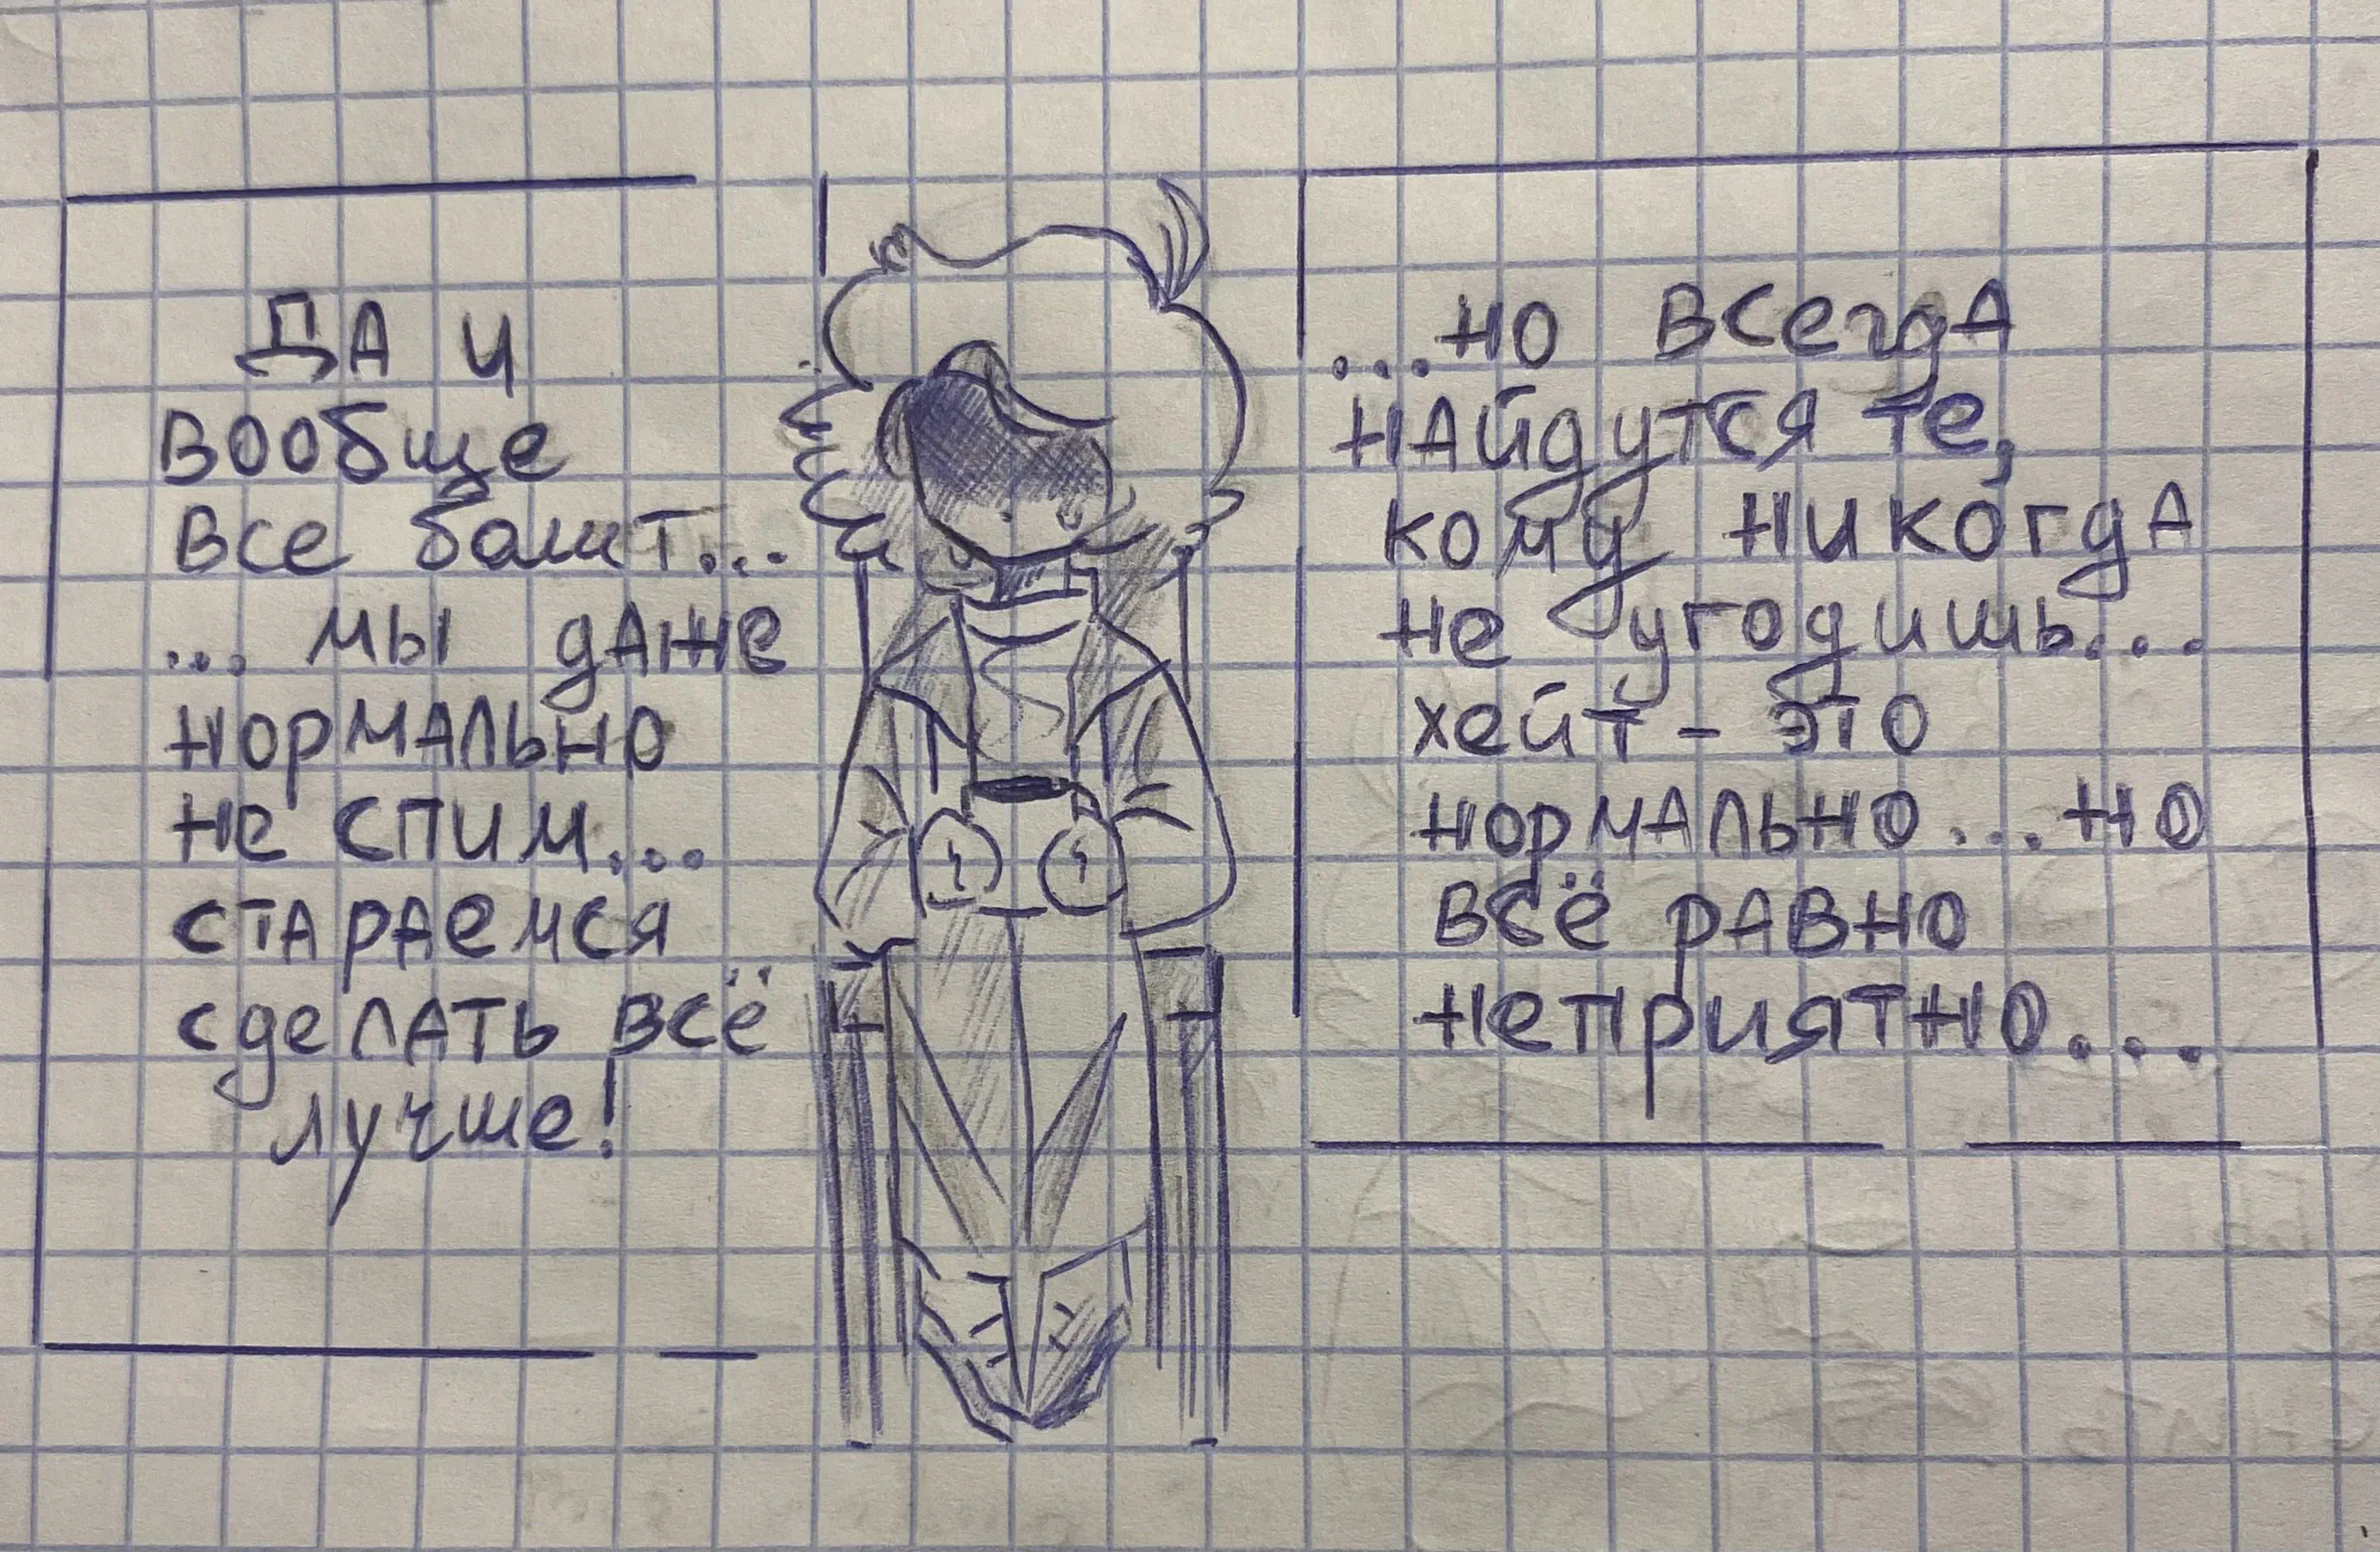 ДА И
ВООБЩЕ
ВСЕ болит...
... мы дАже
НОРМАЛЬНО
НЕ СПИМ...
СТАРАЕМСЯ
СДЕЛАТЬ ВСЁ
лучше!
...НО ВСЕГДА
НАЙДУТСЯ ТЕ,
КОМУ НИКОГДА
НЕ УГОДИШЬ...
ХЕЙТ - ЭТО
НОРМАЛЬНО...НО
ВСЁ РАВНО
НЕПРИЯТНО...